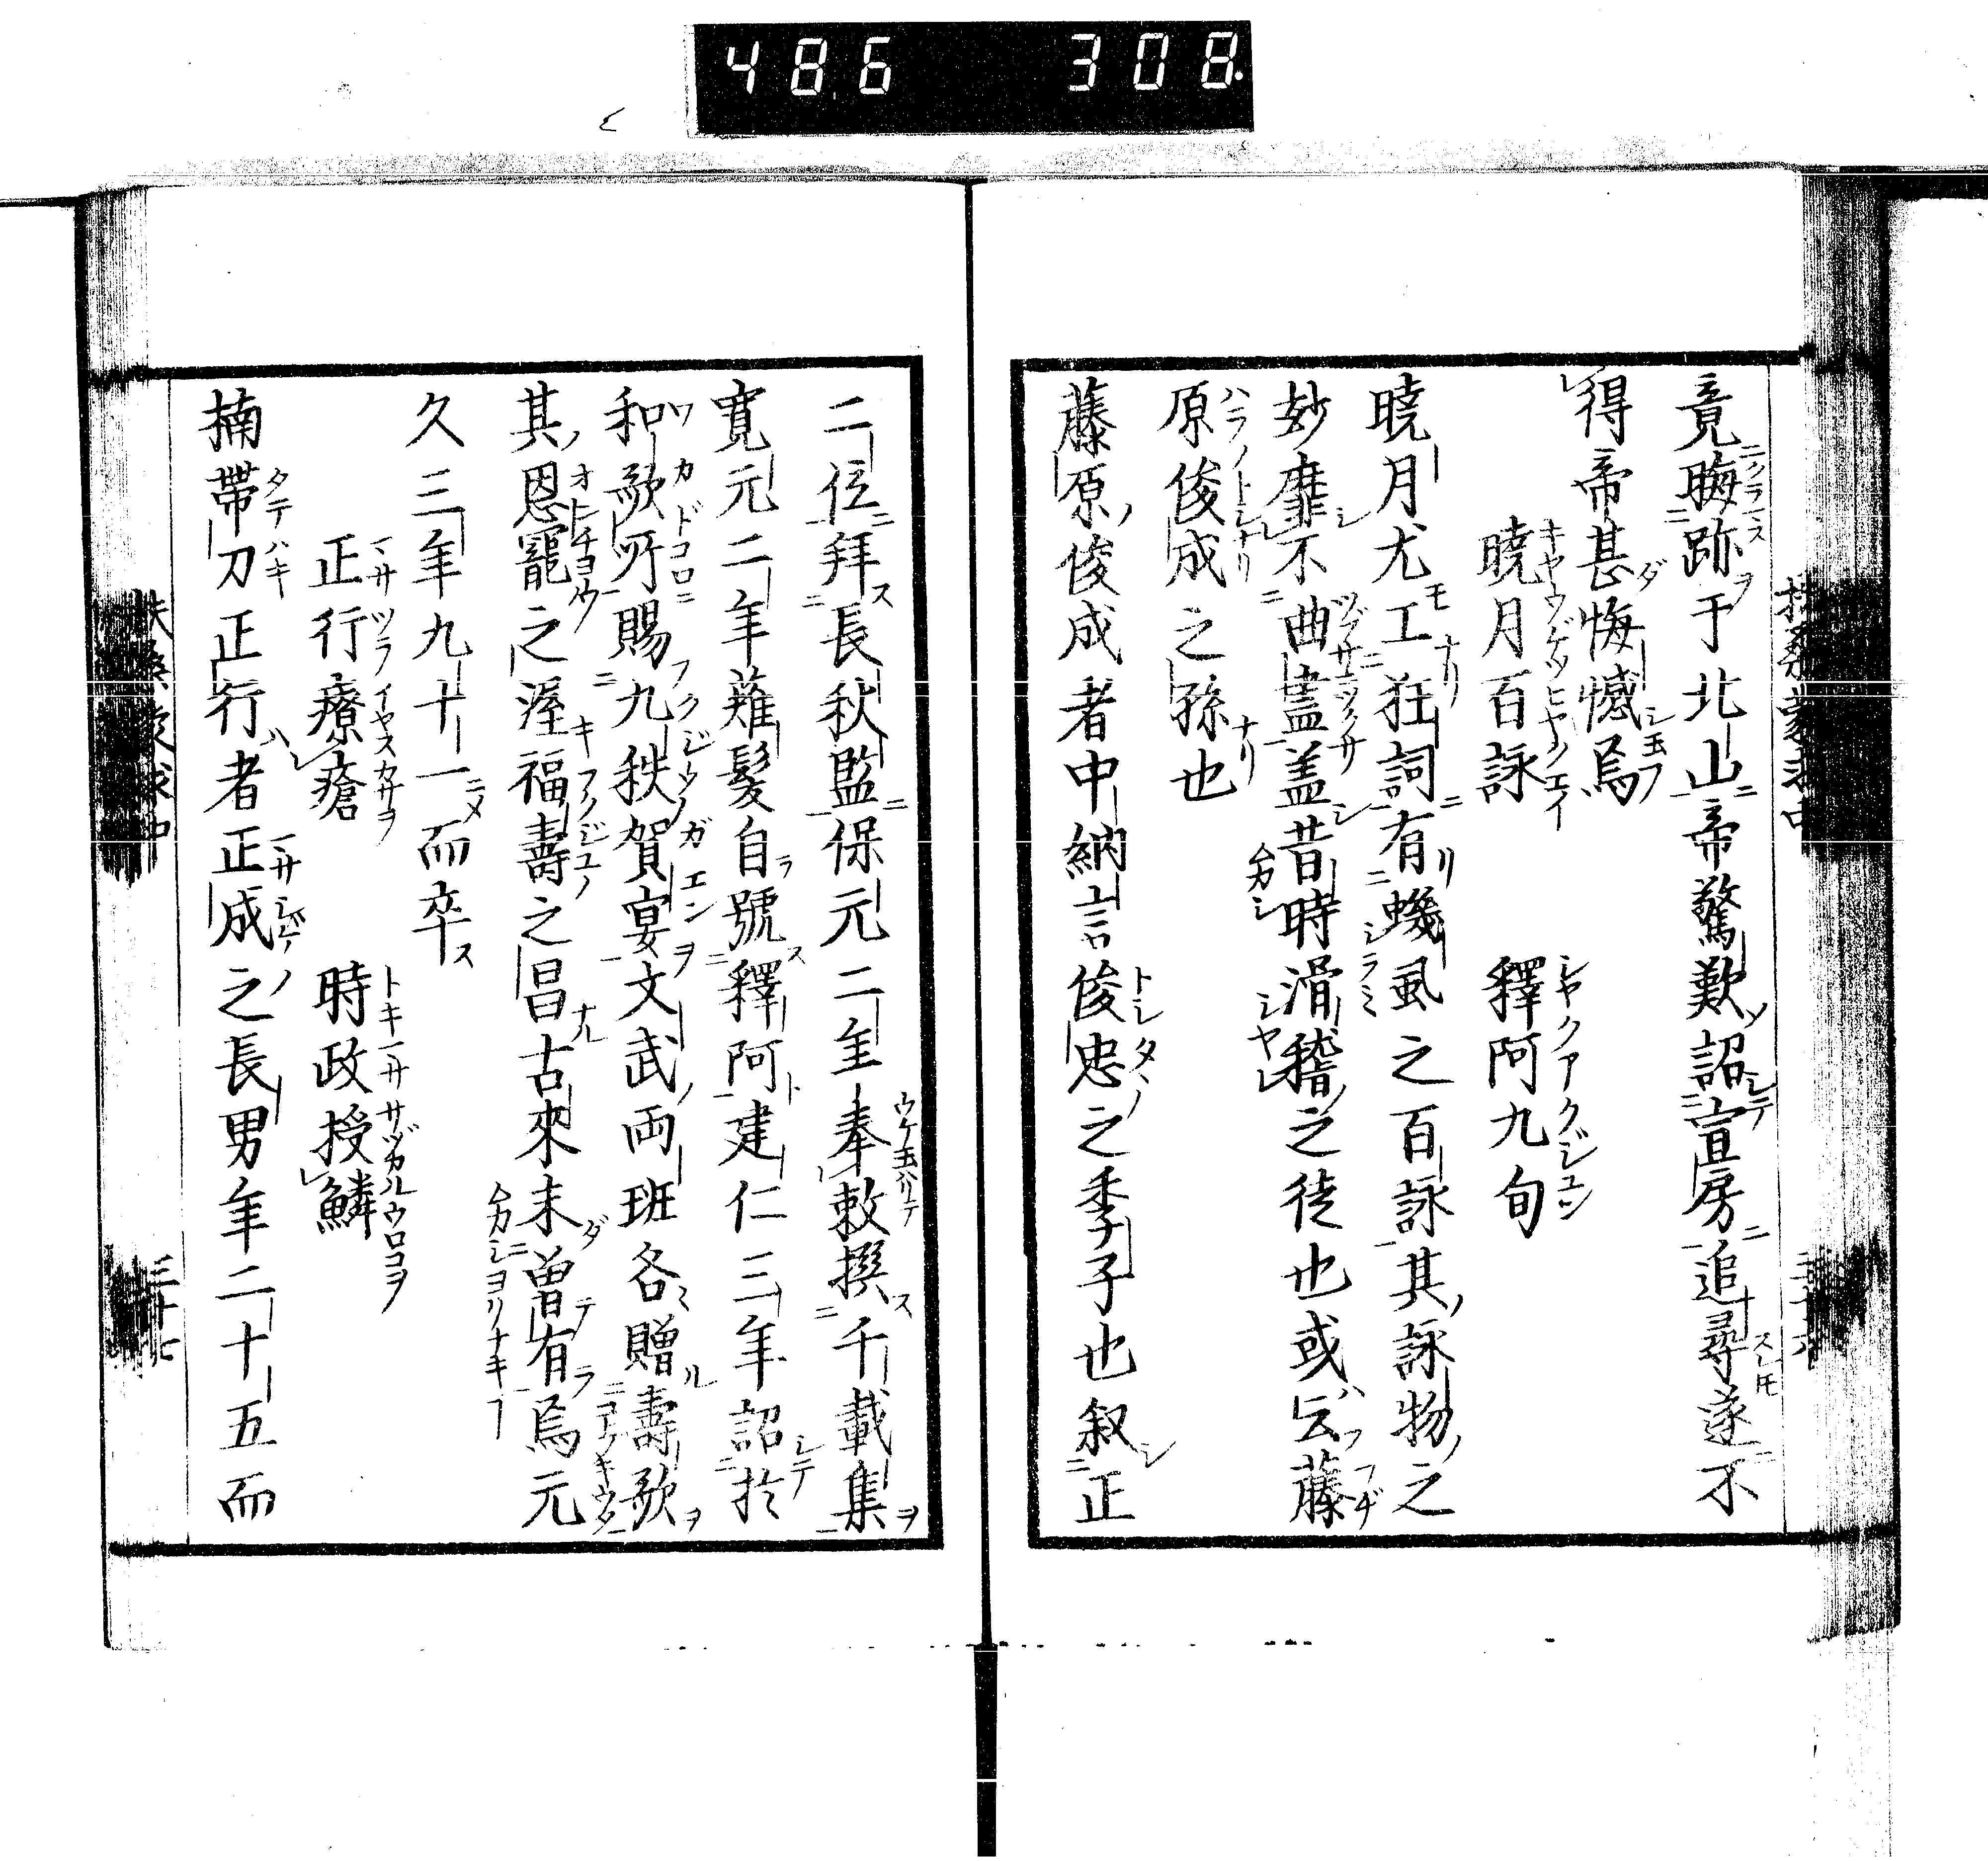 486 308.
竟晦跡于北山帝驚歎詔宣房追尋遂不
得帝甚悔憾焉
曉月百詠 釋阿九旬
曉月尤工狂詞有蟣虱之百詠其詠物之
妙靡不曲盡盖昔時滑稽之徒也或云藤
原俊成之孫也
藤原俊成者中納言俊忠之季子也叙正
二位拜長秋監保元二年奉敕撰千載集
寛元二年薙髮自號釋阿建仁三年詔於
和歌所賜九秩賀宴文武両班各贈壽歌
其恩寵之渥福壽之昌古來未曽有焉元
久三年九十一而卒
正行療瘡 時政授鱗
楠帶刀正行者正成之長男年二十五而